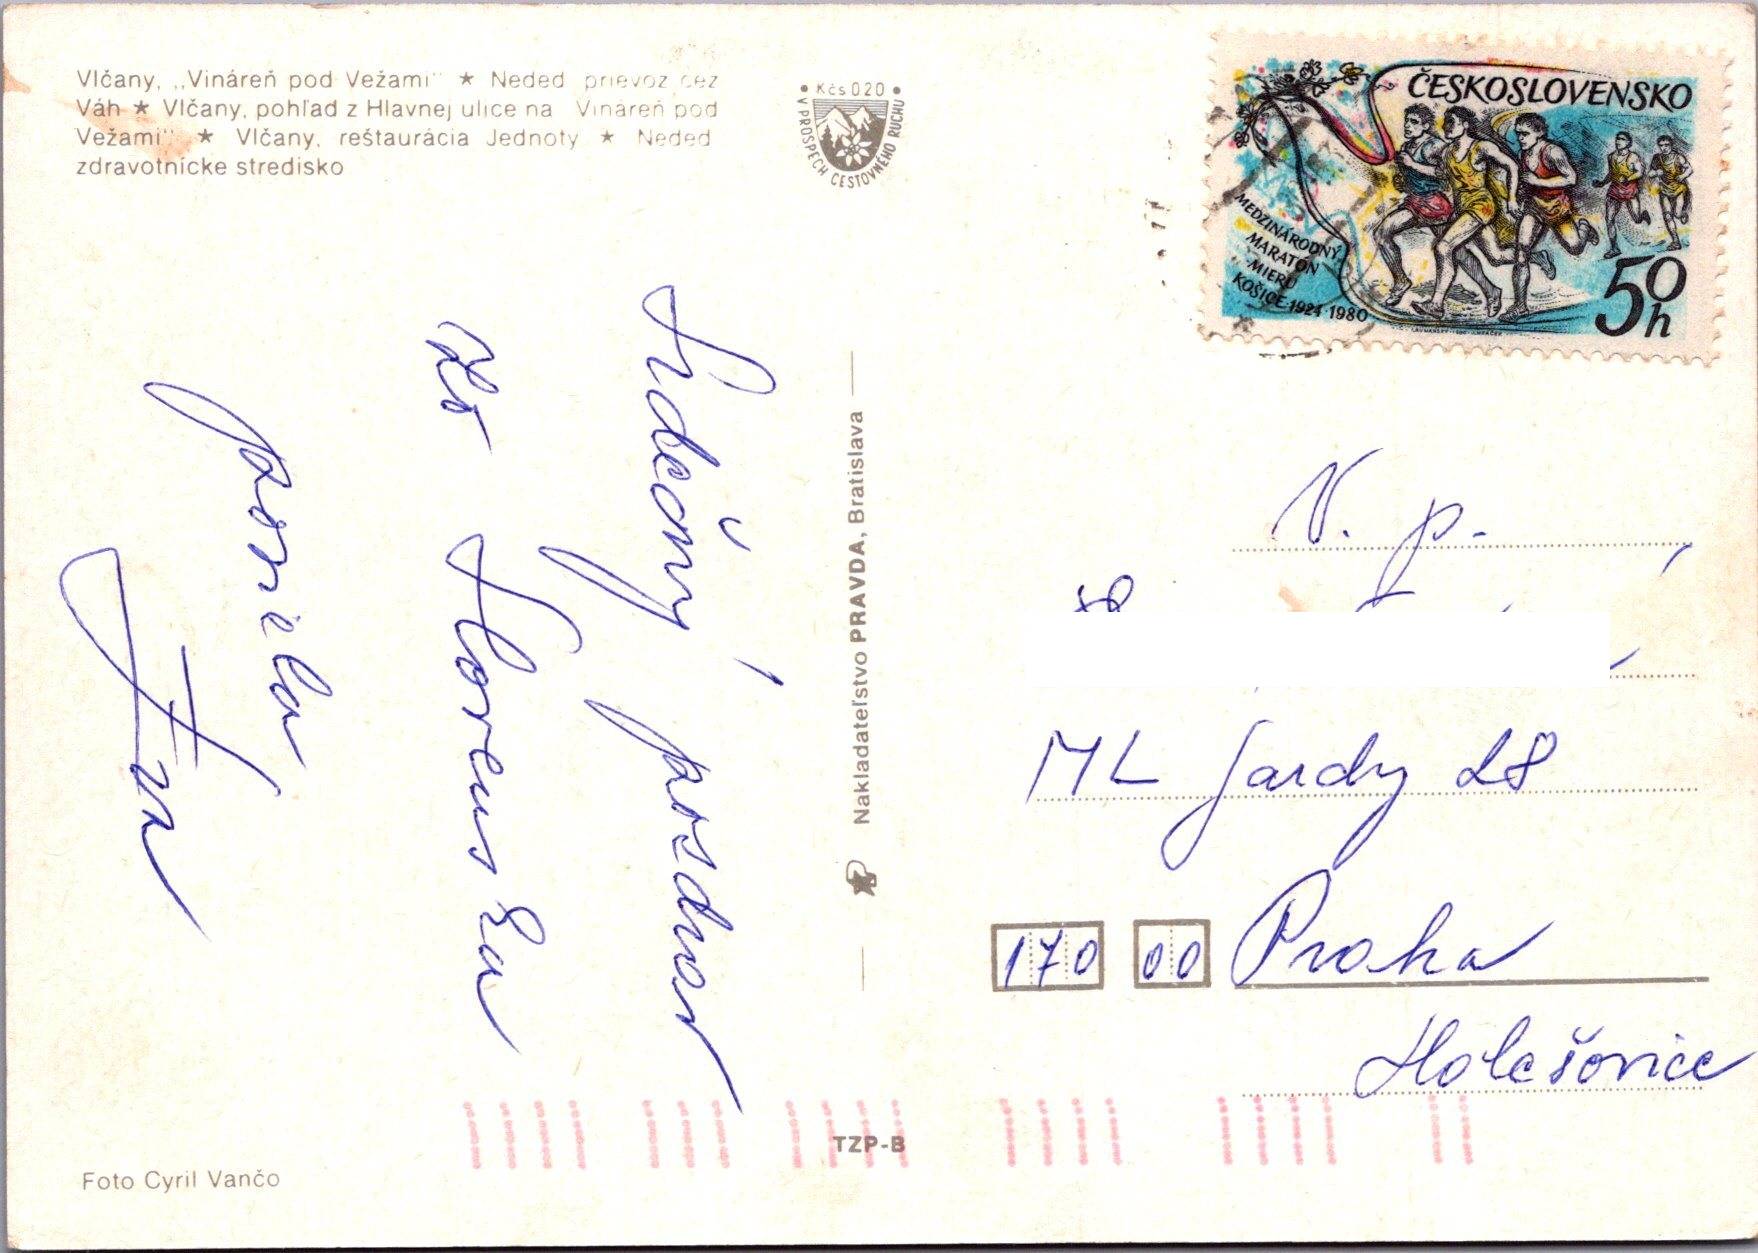 Vlčany, „Vináreň pod Vežami“ ★ Neded prievoz cez
Váh ★ Vlčany, pohľad z Hlavnej ulice na Vináreň pod
Vežami“ ★ Vlčany, reštaurácia Jednoty ★ Neded
zdravotnícke stredisko
• Kčs 020 •
V PROSPECH CESTOVNÉHO RUCHU
ČESKOSLOVENSKO
MEDZINÁRODNÝ
MARATÓN
MIERU
KOŠICE·1924·1980
50h
Srdečný pozdrav
ze Slovenska
posílá
Nakladateľstvo PRAVDA, Bratislava
V. p.
28
170 00 Praha
Holešovice
TZP-B
Foto Cyril Vančo